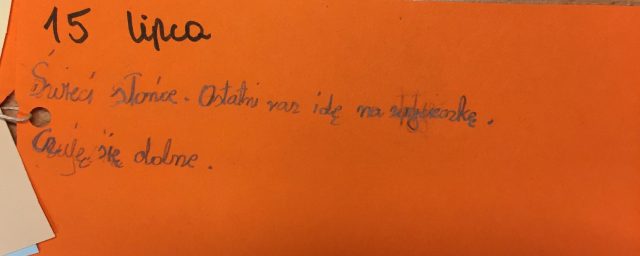 15 lipca
Świeci słońce. Ostatni raz idę na wycieczkę.
Czuję się dobne.